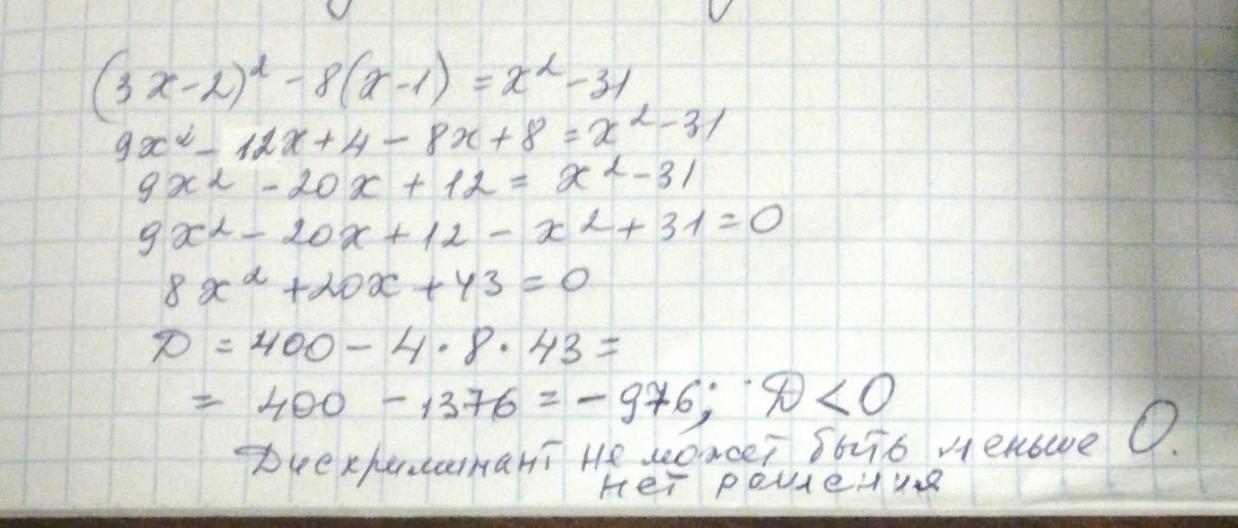 (3x-2)² - 8(x-1) = x² - 31
9x² - 12x + 4 - 8x + 8 = x² - 31
9x² - 20x + 12 = x² - 31
9x² - 20x + 12 - x² + 31 = 0
8x² + 20x + 43 = 0
D = 400 - 4 · 8 · 43 =
= 400 - 1376 = - 976; D < 0
Дискриминант не может быть меньше 0.
нет решения